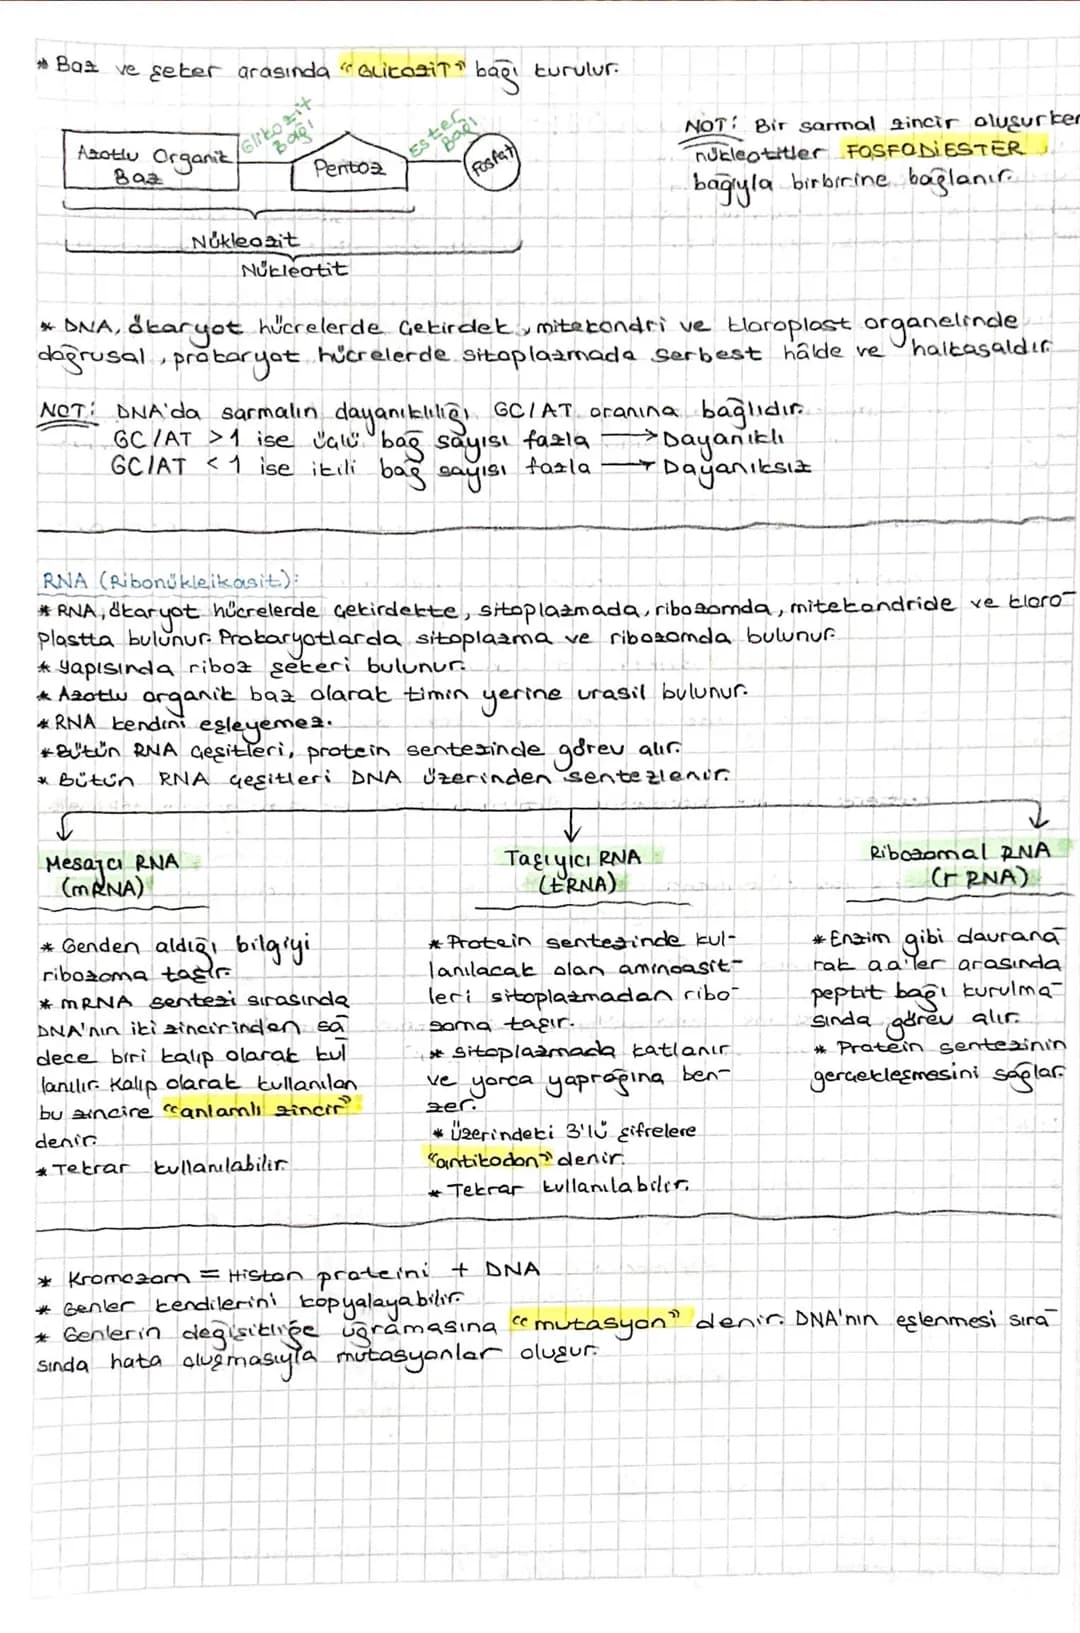 * Baz ve şeker arasında "GLikoziT" bağı kurulur.
Glikozit Bağı
Ester Bağı
Azotlu Organik Baz
Pentoz
Fosfat
Nükleozit
Nükleotit
NOT: Bir sarmal zincir oluşurken
nükleotitler FOSFODİESTER
bağıyla birbirine bağlanır.
* DNA, ökaryot hücrelerde çekirdek, mitokondri ve kloroplast organelinde
doğrusal, prokaryot hücrelerde sitoplazmada serbest hâlde ve halkasaldır.
NOT: DNA'da sarmalın dayanıklılığı GC/AT oranına bağlıdır.
GC/AT >1 ise üçlü bağ sayısı fazla → Dayanıklı
GC/AT <1 ise ikili bağ sayısı fazla → Dayanıksız
RNA (Ribonükleikasit):
* RNA, ökaryot hücrelerde çekirdekte, sitoplazmada, ribozomda, mitokondride ve kloro-
plastta bulunur. Prokaryotlarda sitoplazma ve ribozomda bulunur.
* Yapısında riboz şekeri bulunur.
* Azotlu organik baz olarak timin yerine urasil bulunur.
* RNA kendini eşleyemez.
* Bütün RNA çeşitleri, protein sentezinde görev alır.
* Bütün RNA çeşitleri DNA üzerinden sentezlenir.
Mesajcı RNA
(mRNA)
* Genden aldığı bilgiyi
ribozoma taşır.
* mRNA sentezi sırasında
DNA'nın iki zincirinden sa-
dece biri kalıp olarak kul
lanılır. Kalıp olarak kullanılan
bu zincire "anlamlı zincir"
denir.
* Tekrar kullanılabilir.
Taşıyıcı RNA
(tRNA)
* Protein sentezinde kul-
lanılacak olan aminoasit-
leri sitoplazmadan ribo-
zoma taşır.
* Sitoplazmada katlanır
ve yonca yaprağına ben-
zer.
* Üzerindeki 3'lü şifrelere
"antikodon" denir.
* Tekrar kullanılabilir.
Ribozomal RNA
(rRNA)
* Enzim gibi davrana-
rak aa'ler arasında
peptit bağı kurulma-
sında görev alır.
* Protein sentezinin
gerçekleşmesini sağlar.
* Kromozom = Histon proteini + DNA
* Genler kendilerini kopyalayabilir.
* Genlerin değişikliğe uğramasına "mutasyon" denir. DNA'nın eşlenmesi sıra-
sında hata oluşmasıyla mutasyonlar oluşur.